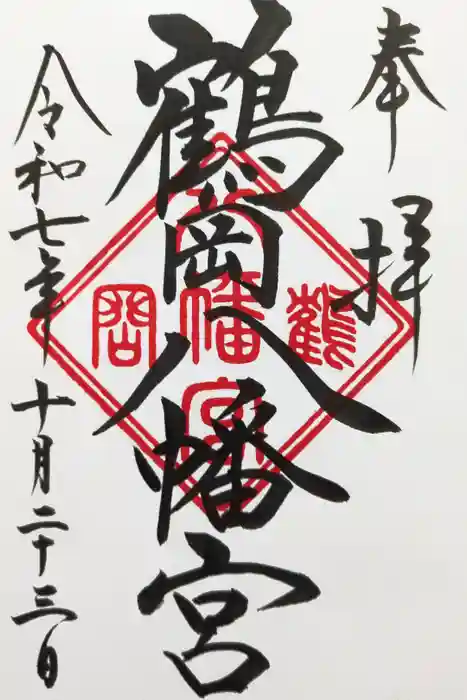 奉拝
鶴岡八幡宮
令和七年十月二十三日
鶴
岡
八
幡
宮